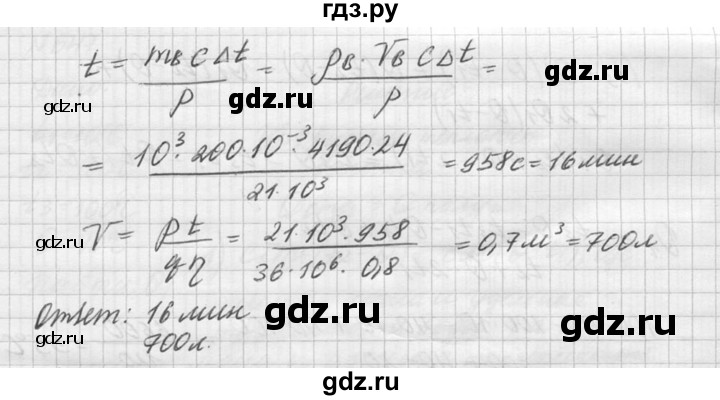 гдз.ру
t = mв c Δt / P = ρв · Vв c Δt / P =
gdz.ru
gdz.ru
gdz.ru
= 10³ · 200 · 10⁻³ · 4190 · 24 / 21 · 10³ = 958 с = 16 мин
V = Pt / qη = 21 · 10³ · 958 / 36 · 10⁶ · 0,8 = 0,7 м³ = 700 л
gdz.ru
gdz.ru
Ответ: 16 мин
700 л.
gdz.ru
gdz.ru
gdz.ru
gdz.ru